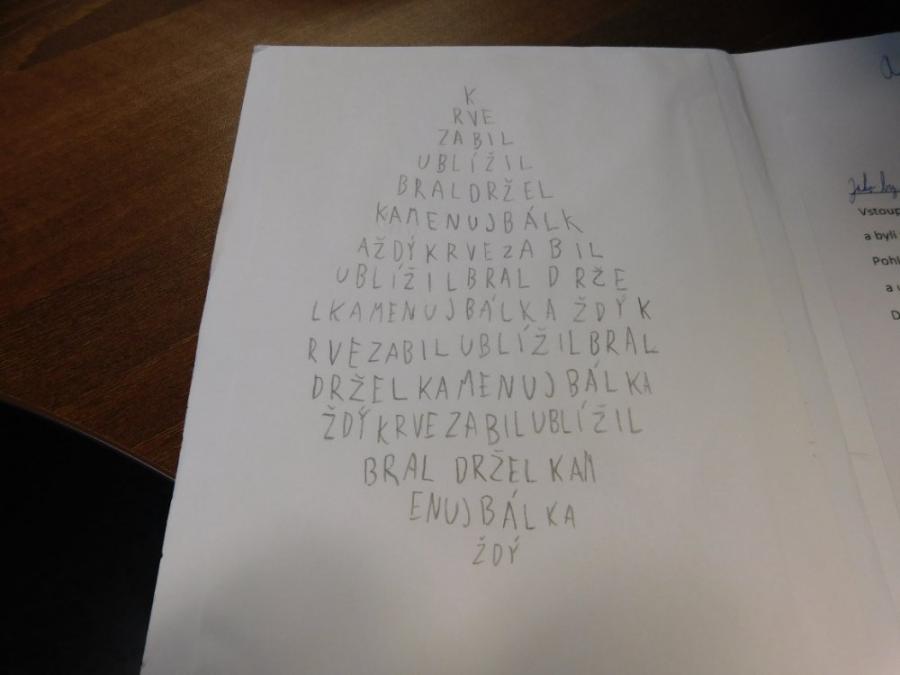 K
RVE
ZABIL
UBLÍŽIL
BRALDRŽEL
KAMENUJBÁLK
AŽDÝKRVEZABIL
UBLÍŽILBRAL DRŽE
LKAMENUJBÁLKA ŽDÝK
RVEZABILUBLÍŽILBRAL
DRŽELKAMENUJBÁLKA
ŽDÝKRVEZABILUBLÍŽIL
BRAL DRŽELKAM
ENUJBÁLKA
ŽDÝ
Vstoup
a byli
Pohl
a
D